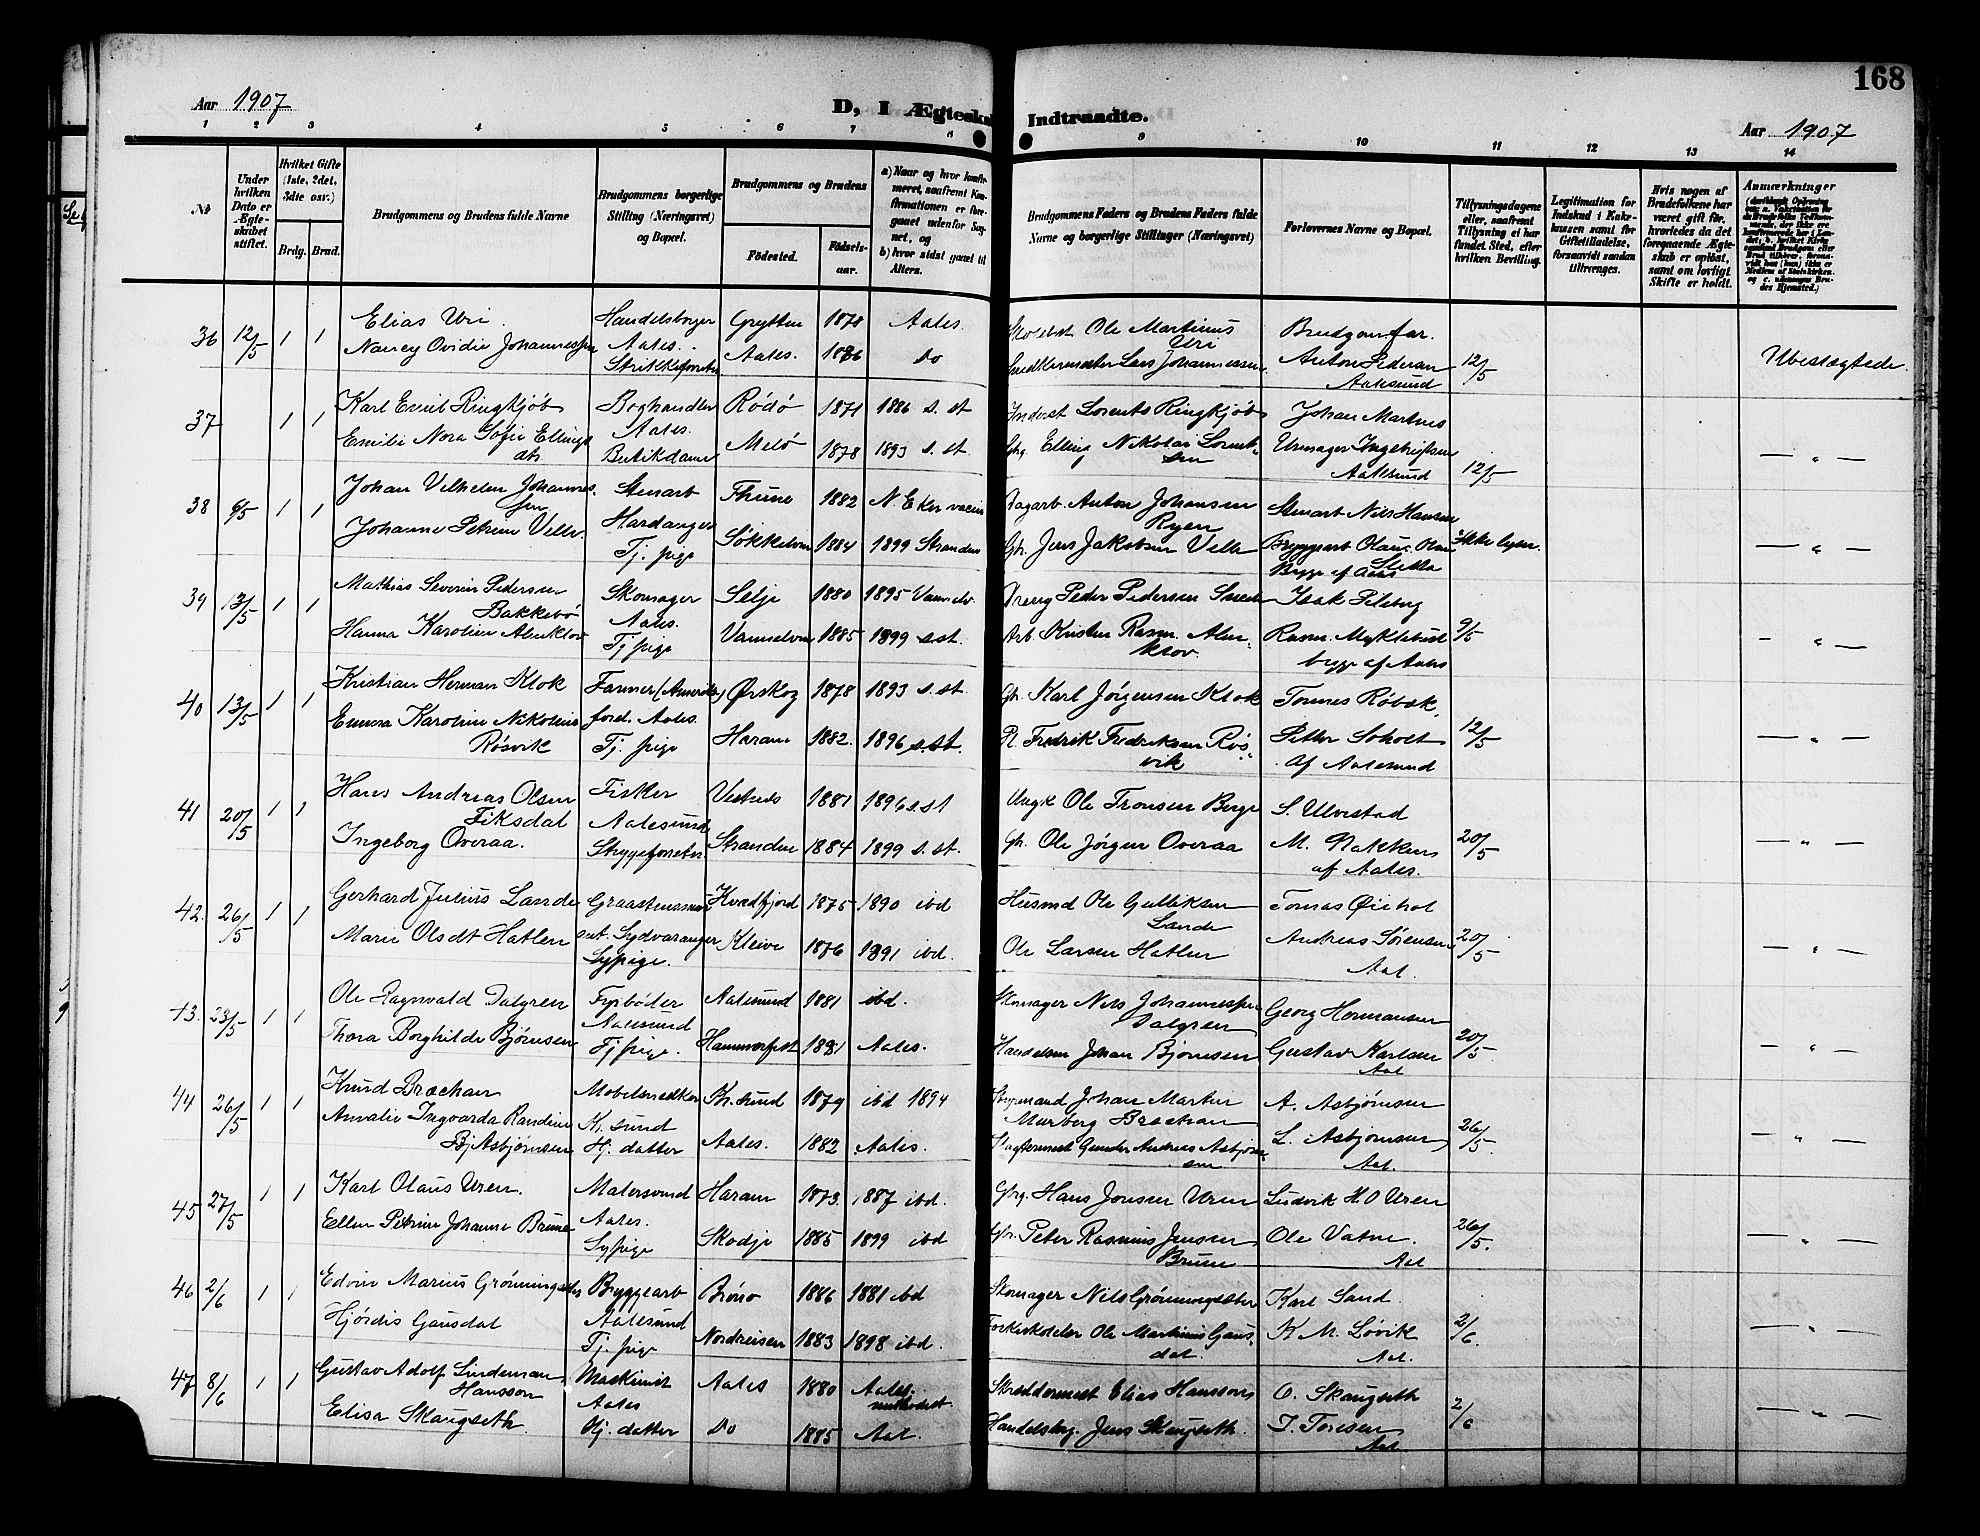 168
Aar 1907
D, I Ægteska
Indtraadte.
Aar 1907
1 2 3 4 5 6 7 8 9 10 11 12 13 14
No
Under hvilken Dato er Ægteskabet stiftet.
Hvilket Gifte (1ste, 2det, 3dte osv.)
Brdg. Brud.
Brudgommens og Brudens fulde Navne
Brudgommens borgerlige Stilling (Næringsvei) og Bopæl.
Brudgommens og Brudens
Fødested.
Fødselsaar.
a) Naar og hvor konfirmeret, saafremt Konfirmationen er foregaaet udenfor Sognet, og
b) hvor sidst gaaet til Alters.
Brudgommens Faders og Brudens Faders fulde Navne og borgerlige Stillinger (Næringsvei)
Forlovernes Navne og Bopæl.
Tillysningsdagene eller, saafremt Tillysning ei har fundet Sted, efter hvilken Bevilling.
Legitimation for Indskud i Enkekassen samt for Giftetilladelse, forsaavidt saadan tiltrænges.
Hvis nogen af Brudefolkene har været gift før, hvorledes da det foregaaende Ægteskab er opløst, samt om lovligt Skifte er holdt.
Anmærkninger
36 12/5 1 1 Elias Uri Handelsborger Grytten 1878 Aales. Ole Martinus Brudgom far.
Nancy Ovidie Johannessen Aales. Aales. 1876 do Uri Anton Pedersen 12/5 Ubeslægtede.
Lars Johannessen Aalesund
37 1 1 Karl Emil Ringkjøb Boghandler Rødø 1871 1886 s. st Inderst Lorents Ringkjøb Johan Martines
Emilie Nora Sofie Ellings Aales. Melø 1878 1893 s. st. Elling Nikolai Lorent- Urmager
dtr. Butikdame sen Aalesund 12/5 — " —
38 6/5 1 1 Johan Vilhelm Johannes- Stenarb Thune 1882 N. Eker Anton Johansen Stenarb Nils Hansen
sen Hardanger Ryen
Johanne Petrine Velle Tj. pige Søkkelven 1884 1899 Stranden Gbr. Jens Jakobsen Velle Bryggearb Olaus Olsen — " —
39 13/5 1 1 Mathias Severin Pedersen Skomager Selje 1880 1895 Vannelv. Peder Pedersen Isak
Bakkebø Aales.
Hanna Karoline Almklov Tj pige Vannelven 1885 1899 s. st. Arb. Kristen Rasm. Alm- Rasm. Myklebust 9/5 — " —
klov. begge af Aales
40 13/5 1 1 Kristian Herman Klok Farmer (Amerika) Ørskog 1878 1893 s. st. Gbr. Karl Jørgensen Klok Tomas Røbek
Emma Karoline Nikoline ford. Aales.
Røsvik Tj. pige Haram 1882. 1896 s. st. Fredrik Fredriksen Røs- Petter Soholt 12/5 — " —
vik af Aalesund
41 20/5 1 1 Hans Andreas Olsen Fisker Vestnes 1881 1896 s. st Ungk Ole Tronsen Berge S. Ulvestad
Fiksdal Aalesund
Ingeborg Overaa. Strygeforretn. Stranden 1884 1899 s. st. Gbr. Ole Jørgen Overaa M. Nakken 20/5 — " —
af Aales.
42. 26/5 1 1 Gerhard Julius Lande Kvædfjord 1875 1890 ibd Husmd Ole Gulliksen Tomas
Lande
Marie Olsdt Hatlen Sydvaranger Kleive 1876 1891 ibd. Ole Larsen Hatlen Andreas Sørensen 20/5 — " —
Sypige. Aal.
43. 23/5 1 1 Ole Ragnvald Dalgren Fyrbøder Aalesund 1881 ibd. Skomager Nils Johannessen Georg Hermansen
Aalesund Dalgren
Thora Borghilde Bjørnsen Tj pige. Hammerfest 1881 Aales. Handelsm Johan Bjørnsen Gustav Karlsen 20/5. — " —
Aal
44 26/5 1 1 Knud Brechan Møbelsnedker Kr.sund 1879 ibd 1894 Johan Martin A. Asbjørnsen
Amalie Ingvarda Randine Kr. sund Murberg Brechan
Asbjørnsen Hj. datter Aales. 1882 Aales. Gunder Andreas Asbjørn- L. Asbjørnsen 26/5. — " —
sen Aal.
45 27/5 1 1 Karl Olaus Uren. Malersvend Haram 1873. 1887 ibd. Gbr. Hans Jonsen Uren Ludvik H O Uren
Ellen Petrine Johanne Brune Aales.
Sypige Skodje 1885 1899 ibd Gbr. Peter Rasmus Jensen Ole Vatne. 26/5. — " —
Brune Aal
46 2/6 1 1 Edvin Marius Grønningsæter Bryggearb Brønø 1886 1881 ibd Skomager Nils Grønningsæter Karl Sand.
Hjørdis Gausdal Aalesund
Tj. pige Nordreisen 1883 1898 ibd. Ole Martinus Gaus- K M. Løvik 2/6. — " —
dal. Aal.
47 8/6 1 1 Gustav Adolf Lindeman Maskinist Aales 1880 Aales. Skræddermest Elias Hansson O. Skaugseth
Hansson Aales methodist
Elisa Skaugseth. Hj. datter Do 1885 Aal. Handelsbrg. Jens Skaugseth. J. Toresen 2/6 — " —
Aal